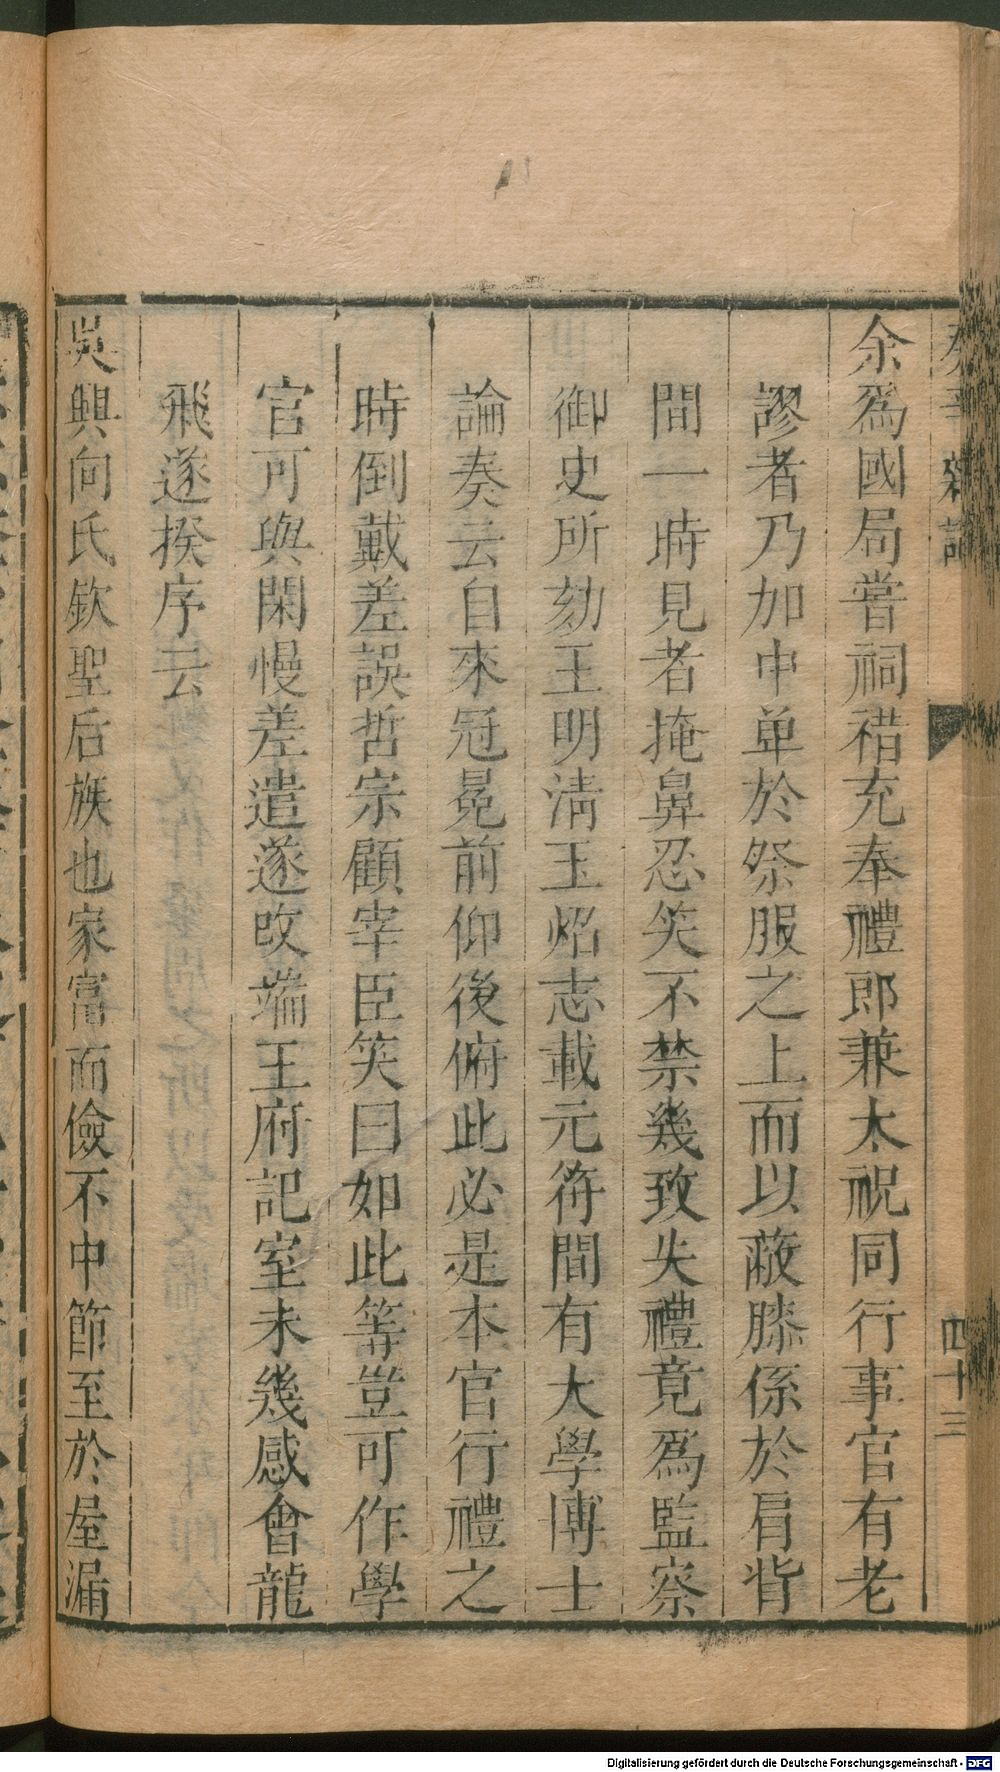 余爲國局嘗祠禖充奉禮郎兼太祝同行事官有老
謬者乃加中单於祭服之上而以蔽膝係於肩背
間一時見者掩鼻忍笑不禁幾致失禮竟爲監察
御史所劾王明淸玉炤志載元符間有大學博士
論奏云自來冠冕前仰後俯此必是本官行禮之
時倒戴差誤哲宗顧宰臣笑曰如此等豈可作學
官可與閑慢差遣遂改端王府記室未幾感會龍
飛遂揆序云
吳興向氏欽聖后族也家富而儉不中節至於屋漏
四十三
Digitalisierung gefördert durch die Deutsche Forschungsgemeinschaft - DFG